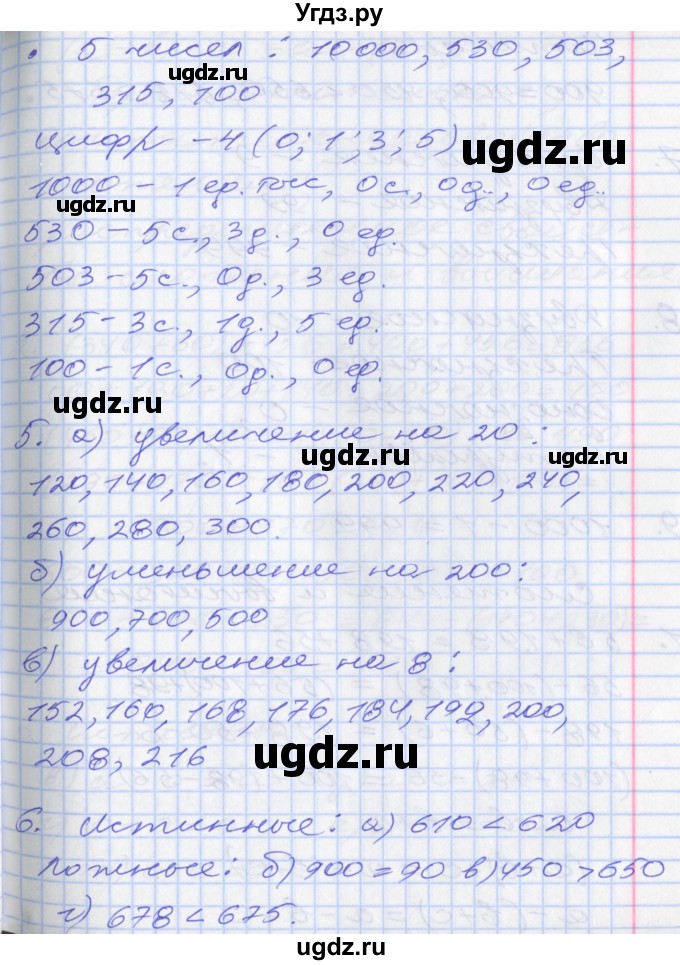 Угдз.ру
• 5 чисел : 10000, 530, 503,
ugdz.ru
315, 100
цифр – 4 (0; 1; 3; 5)
ugdz.ru
1000 – 1 ед. тыс, 0 с., 0 д., 0 ед.
ugdz.ru
530 – 5 с., 3 д., 0 ед.
503 – 5 с., 0 д., 3 ед.
ugdz.ru
315 – 3 с., 1 д., 5 ед.
100 – 1 с., 0 д., 0 ед.
ugdz.ru
5. а) увеличение на 20 :
ugdz.ru ugdz.ru
120, 140, 160, 180, 200, 220, 240,
260, 280, 300.
б) уменьшение на 200:
900, 700, 500
в) увеличение на 8 :
152, 160, 168, 176, 184, 192, 200,
208, 216
ugdz.ru
6. Истинные: а) 610 < 620
Ложные: б) 900 = 90 в) 450 > 650
г) 678 < 675.
ugdz.ru